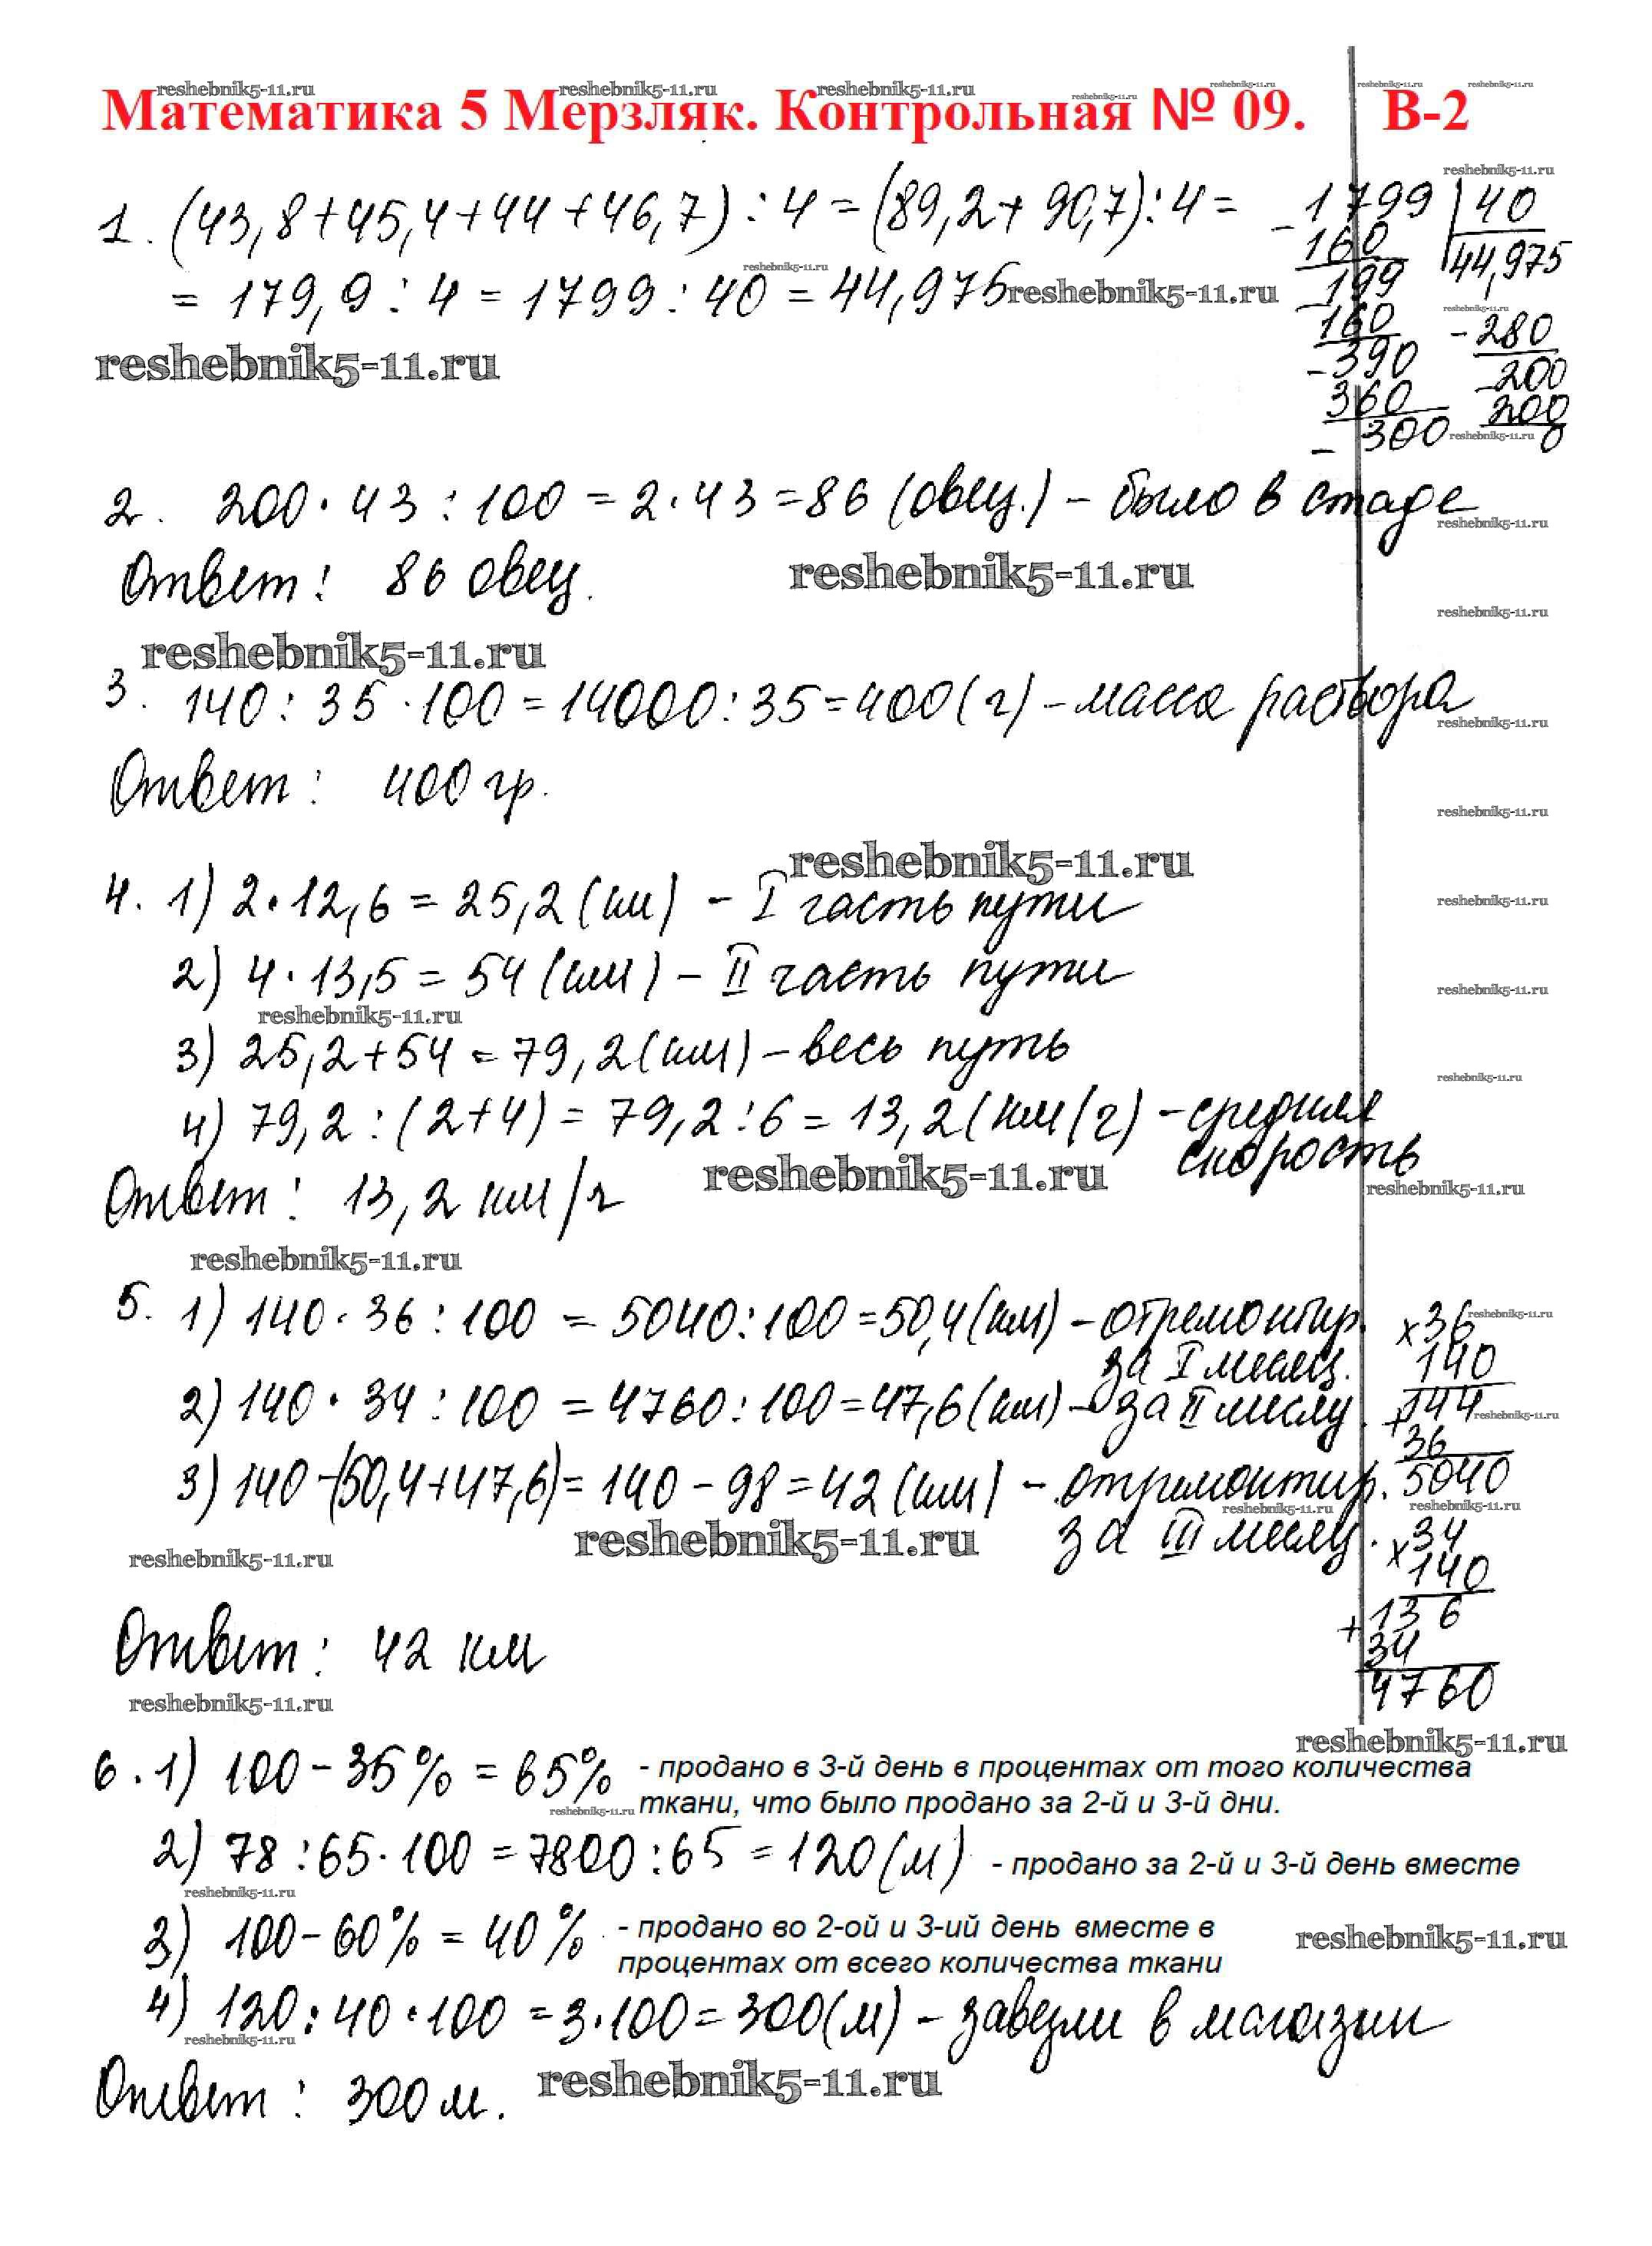 Математика 5 Мерзляк. Контрольная № 09. В-2
reshebnik5-11.ru
1. (43,8+45,4+44+46,7):4=(89,2+90,7):4=
= 179,9:4=1799:40=44,975
reshebnik5-11.ru
-1799 |40
160 44,975
-199
160
-390
360
-300
-280
-200
200
0
2. 200·43:100=2·43=86 (овец.) - было в стаде
Ответ: 86 овец.
reshebnik5-11.ru
3. 140:35·100=14000:35=400(г) - масса раствора
Ответ: 400 гр.
reshebnik5-11.ru
4. 1) 2·12,6=25,2(км) - I часть пути
2) 4·13,5=54(км) - II часть пути
reshebnik5-11.ru
3) 25,2+54=79,2(км) - весь путь
4) 79,2:(2+4)=79,2:6=13,2(км/ч) - средняя
скорость
reshebnik5-11.ru
Ответ: 13,2 км/ч
reshebnik5-11.ru
5. 1) 140·36:100=5040:100=50,4(км) - отремонтир.
за I месяц.
2) 140·34:100=4760:100=47,6(км) - за II месяц.
3) 140-(50,4+47,6)=140-98=42(км) - отремонтир.
за III месяц.
reshebnik5-11.ru
x36
140
+144
36
5040
x34
140
+136
34
4760
Ответ: 42 км
reshebnik5-11.ru
6. 1) 100-35%=65% - продано в 3-й день в процентах от того количества
ткани, что было продано за 2-й и 3-й дни.
2) 78:65·100=7800:65=120(м) - продано за 2-й и 3-й день вместе
reshebnik5-11.ru
3) 100-60%=40% - продано во 2-ой и 3-ий день вместе в
процентах от всего количества ткани
reshebnik5-11.ru
4) 120:40·100=3·100=300(м) - завезли в магазин
Ответ: 300 м.
reshebnik5-11.ru